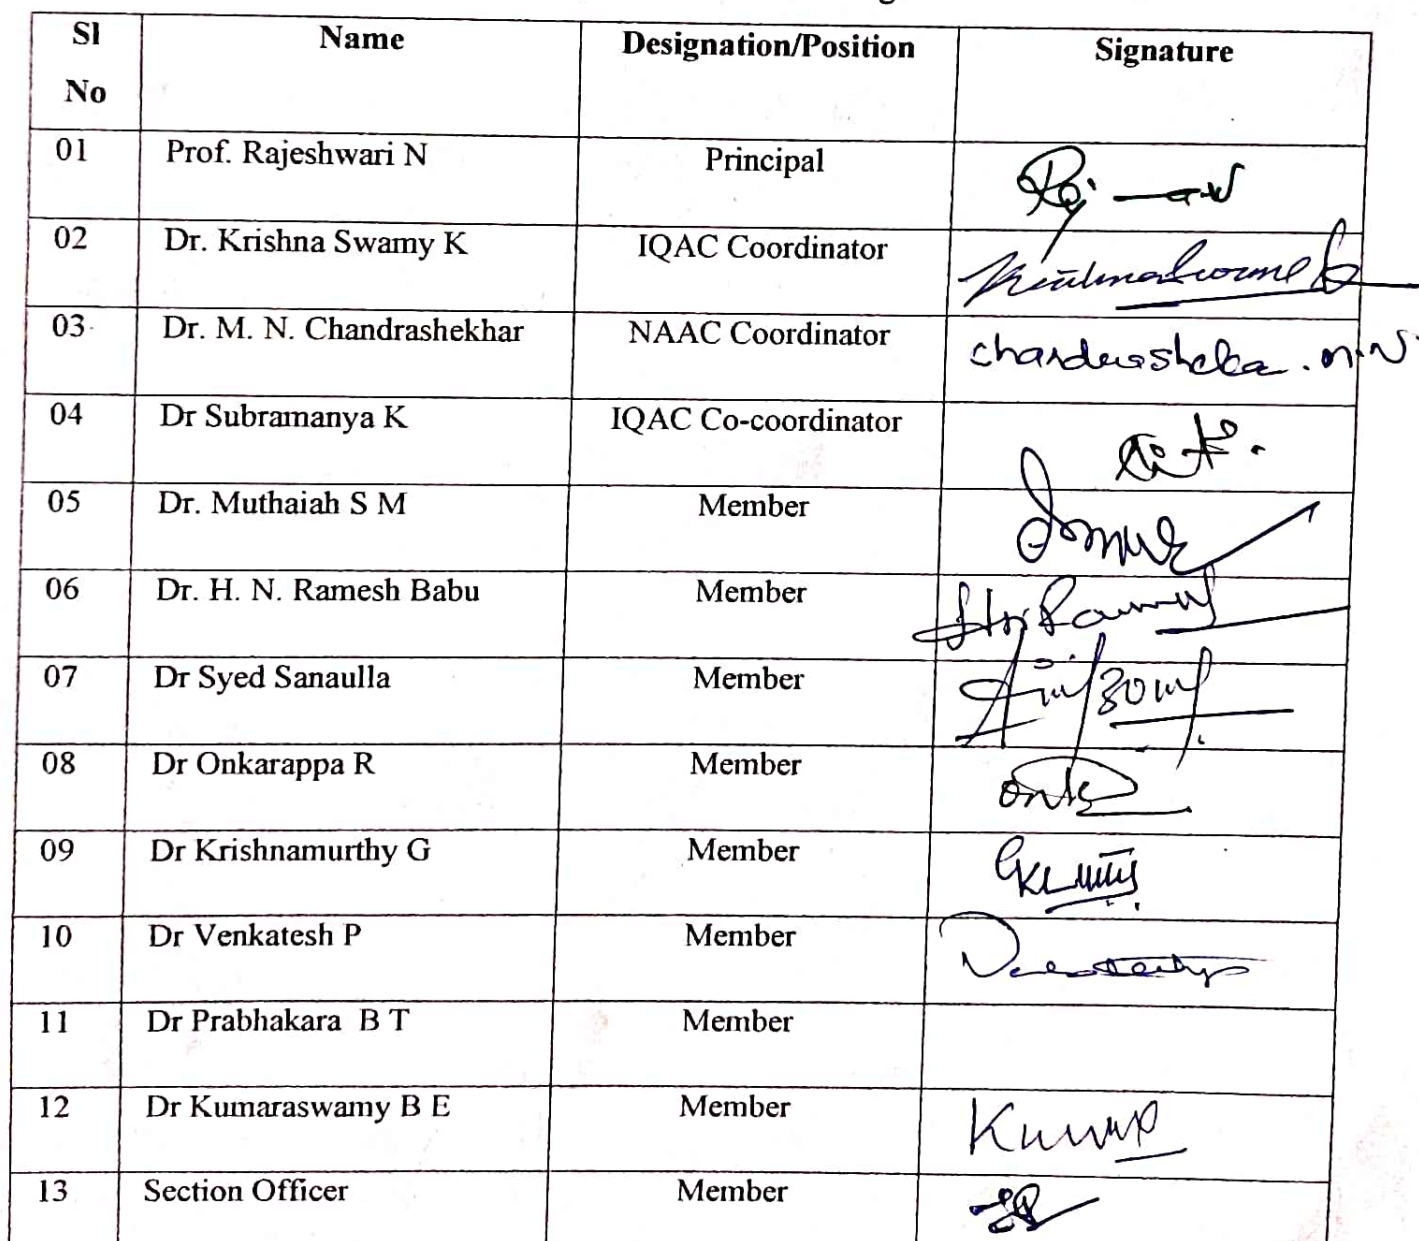 Sl No Name Designation/Position Signature
01 Prof. Rajeshwari N Principal
02 Dr. Krishna Swamy K IQAC Coordinator
03 Dr. M. N. Chandrashekhar NAAC Coordinator
04 Dr Subramanya K IQAC Co-coordinator
05 Dr. Muthaiah S M Member
06 Dr. H. N. Ramesh Babu Member
07 Dr Syed Sanaulla Member
08 Dr Onkarappa R Member
09 Dr Krishnamurthy G Member
10 Dr Venkatesh P Member
11 Dr Prabhakara B T Member
12 Dr Kumaraswamy B E Member
13 Section Officer Member